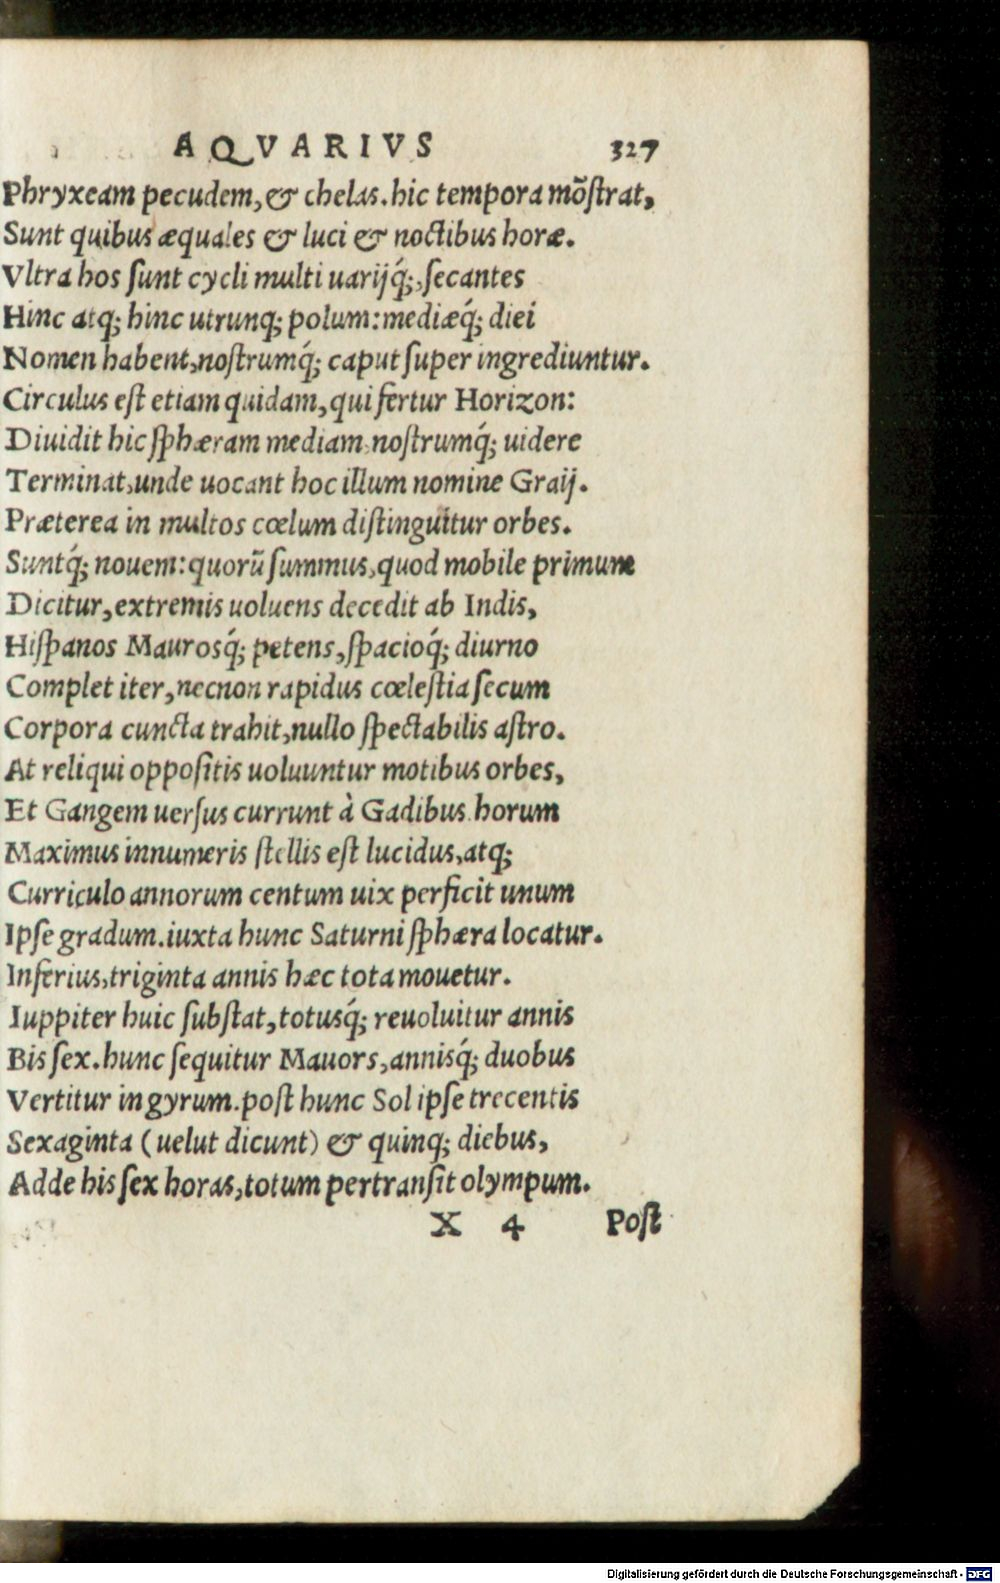 AQVARIVS 327
Phryxeam pecudem, & chelas. hic tempora mõſtrat,
Sunt quibus æquales & luci & noctibus horæ.
Vltra hos ſunt cycli multi uarijq́;, ſecantes
Hinc atq; hinc utrunq; polum: mediæq́; diei
Nomen habent, noſtrumq́; caput ſuper ingrediuntur.
Circulus eſt etiam quidam, qui fertur Horizon:
Diuidit hic ſphæram mediam, noſtrumq́; uidere
Terminat, unde uocant hoc illum nomine Graij.
Præterea in multos cœlum diſtinguitur orbes.
Suntq́; nouem: quorũ ſummus, quod mobile primum
Dicitur, extremis uoluens decedit ab Indis,
Hiſpanos Maurosq́; petens, ſpacioq́; diurno
Complet iter, necnon rapidus cœleſtia ſecum
Corpora cuncta trahit, nullo ſpectabilis aſtro.
At reliqui oppoſitis uoluuntur motibus orbes,
Et Gangem uerſus currunt à Gadibus. horum
Maximus innumeris ſtellis eſt lucidus, atq;
Curriculo annorum centum uix perficit unum
Ipſe gradum. iuxta hunc Saturni ſphæra locatur.
Inferius, triginta annis hæc tota mouetur.
Iuppiter huic ſubſtat, totusq́; reuoluitur annis
Bis ſex. hunc ſequitur Mauors, annisq́; duobus
Vertitur in gyrum. poſt hunc Sol ipſe trecentis
Sexaginta (uelut dicunt) & quinq; diebus,
Adde his ſex horas, totum pertranſit olympum.
X 4 Poſt
Digitalisierung gefördert durch die Deutsche Forschungsgemeinschaft - DFG